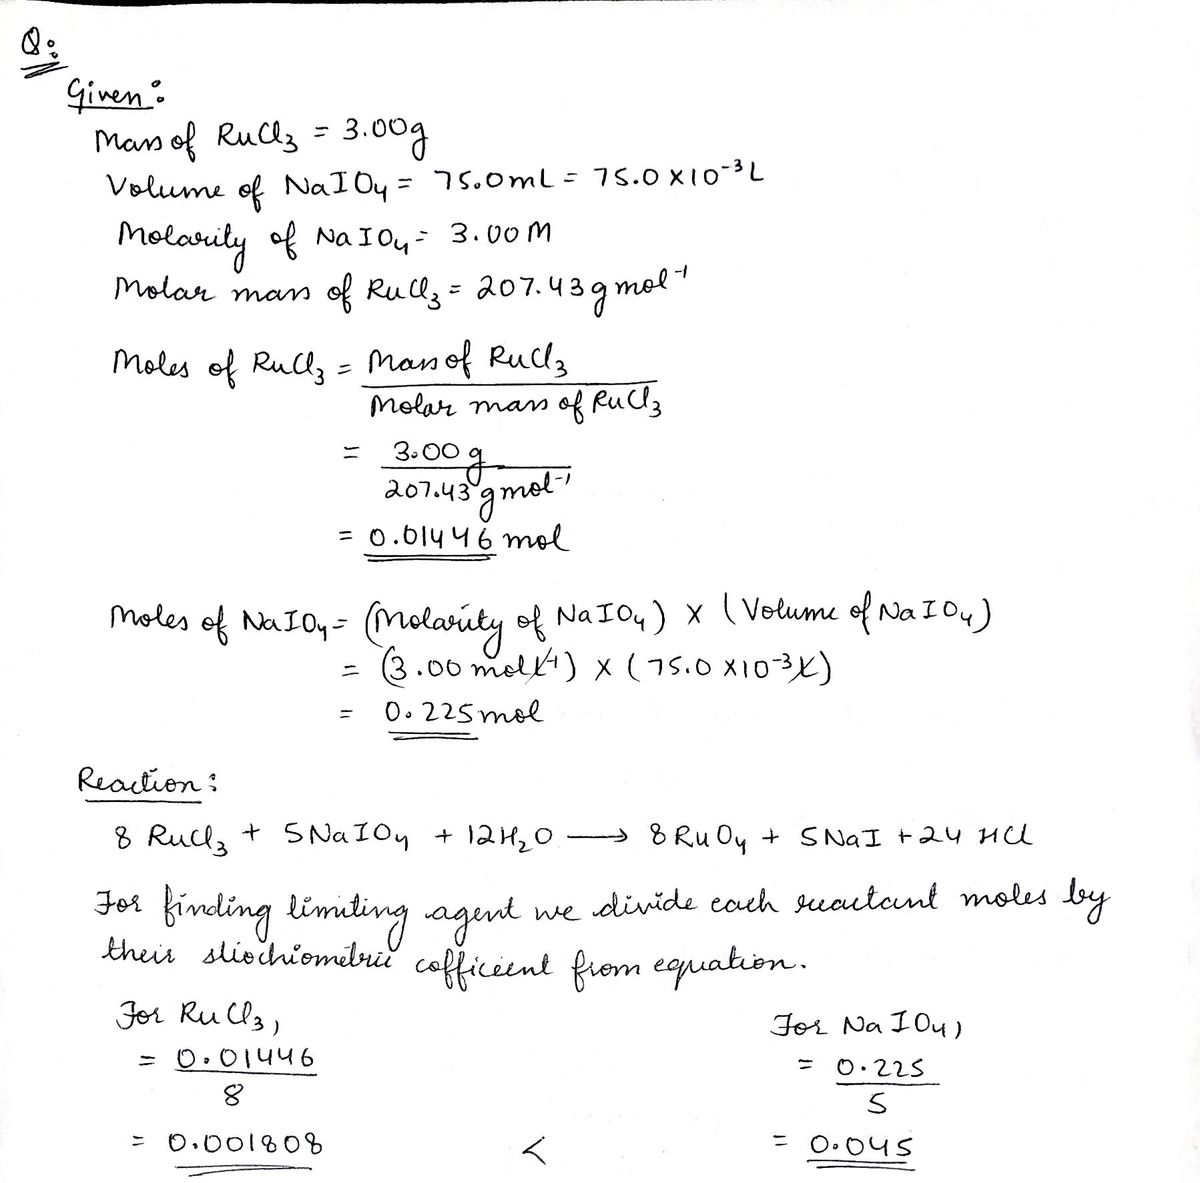 Q:
Given:
Mass of RuCl₃ = 3.00g
Volume of NaIO₄ = 75.0mL = 75.0 X10⁻³L
Molarity of NaIO₄ = 3.00M
Molar mass of RuCl₃ = 207.43 g mol⁻¹
Moles of RuCl₃ = Mass of RuCl₃
Molar mass of RuCl₃
= 3.00 g
207.43 g mol⁻¹
= 0.01446 mol
Moles of NaIO₄ = (Molarity of NaIO₄) X (Volume of NaIO₄)
= (3.00 mol L⁻¹) X (75.0 X10⁻³L)
= 0.225 mol
Reaction:
8 RuCl₃ + 5NaIO₄ + 12H₂O ⟶ 8RuO₄ + 5NaI + 24 HCl
For finding limiting agent we divide each reactant moles by
their stiochiometric cofficient from equation.
For RuCl₃, For NaIO₄,
= 0.01446 = 0.225
8 5
= 0.001808 < = 0.045